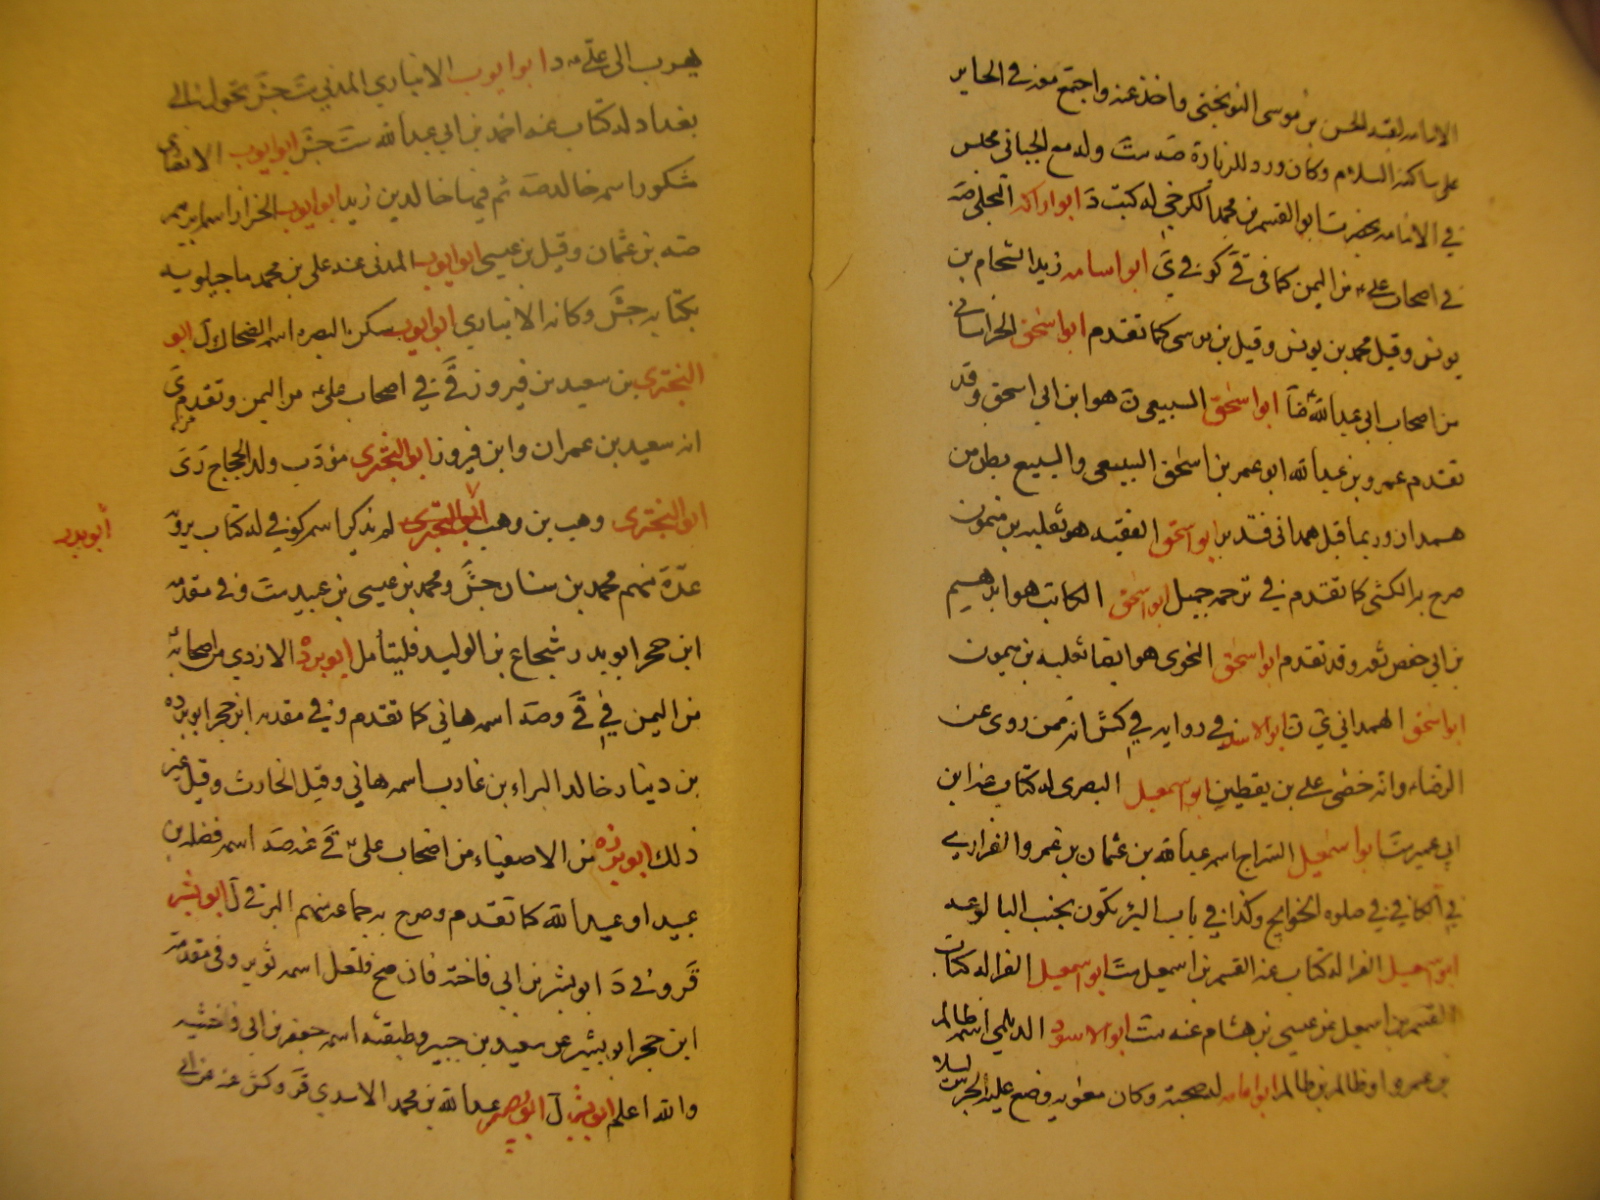 الامامه لقيه الحسن بن موسى النوبختى واخذ عنه واجتمع معه في الحاير
على ساكنه السلام وكان ورد للزيارة صه ست وله مع الجبائى مجلس
في الامامه بحضرت ابو القسم بن محمد الكرخى له كتب د ابو اراكه البجلى صه
في اصحاب على ع من اليمن كما فى ق كو و في ى ابو اسامه زيد الشحام بن
يونس وقيل محمد بن يونس وقيل بن موسى كما تقدم ابو اسحق الخراسانى
من اصحاب ابى عبد الله ع ابو اسحق السبيعى هو ابن ابى اسحق وقد
تقدم عمرو بن عبد الله ابو عمر بن اسحق السبيعى والسبيع بطن من
همدان وربما قيل همدانى ابو اسحق الفقيه هو ثعلبه بن ميمون
صرح به الكشى كما تقدم في ترجمه جميل ابو اسحق الكاتب هو ابرهيم
بن ابى حفص ثقه وقد تقدم ابو اسحق النحوى هو ايضا ثعلبه بن ميمون
ابو اسحق الهمدانى ى ابو الاسد في روايه في كش انه ممن روى عن
الرضا ع وانه خصى على بن يقطين ابو اسمعيل البصرى له كتاب عنه ابن
ابى عمير ست ابو اسمعيل السراج اسمه عبد الله بن عثمان بن عمرو الفزارى
في الكافي في صلوه الحوايج وكذا في باب البئر تكون بجنب البالوعه
ابو اسمعيل الفرا له كتاب عنه القسم بن اسمعيل ست ابو اسمعيل الفرا له كتاب
القسم بن اسمعيل عن عيسى بن هشام عنه ست ابو الاسود الديلمى اسمه ظالم
بن عمرو او ظالم بن ظالم ابو امامه له صحبة وكان معويه وضع عليه الحرس لئلا
يهرب الى على ع د ابو ايوب الانبارى المدنى ست جش تحول الى
بغداد له كتاب عنه احمد بن ابى عبد الله ست جش ابو ايوب الانصارى
مشكور اسمه خالد صه ثم فيها خالد بن زيد ابو ايوب الخزاز اسمه ابرهيم
صه بن عثمان وقيل بن عيسى ابو ايوب المدنى عنه على بن محمد ماجيلويه
بكتابه جش وكانه الانبارى ابو ايوب سكن البصره اسمه الضحاك ل ابو
البخترى بن سعيد بن فيروز ق في اصحاب على ع من اليمن وتقدم ى
انه سعيد بن عمران وابن فيروز ابو البخترى مؤدب ولد الحجاج دى
ابو البخترى وهب بن وهب ابو البخترى لم يذكر اسمه كو في له كتاب يرويه
عدة منهم محمد بن سنان جش ومحمد بن عيسى بن عبيد ست وفي مقدمه
أبو بدر
ابن حجر ابو بدر شجاع بن الوليد فليتأمل ابو برده الازدى من اصحابه
من اليمن في ق وصه اسمه هانى كما تقدم وفي مقدمه ابن حجر ابو برده
بن دينار خال البراء بن عازب اسمه هانى وقيل الحارث وقيل غير
ذلك ابو برزه من الاصفياء من اصحاب على ع ق عنه صه اسمه فضله بن
عبيد او عبد الله كما تقدم وصرح به جماعه منهم البرقى ل ابو بشر
ق و في د ابو بشر بن ابى فاخته فان صح فلعل اسمه ثوير وفى مقدمه
ابن حجر ابو بشر عن سعيد بن جبير وطبقته اسمه جعفر بن ابى وحشيه
والله اعلم ل ابو بصير عبد الله بن محمد الاسدى ق و كش عنه من ابى